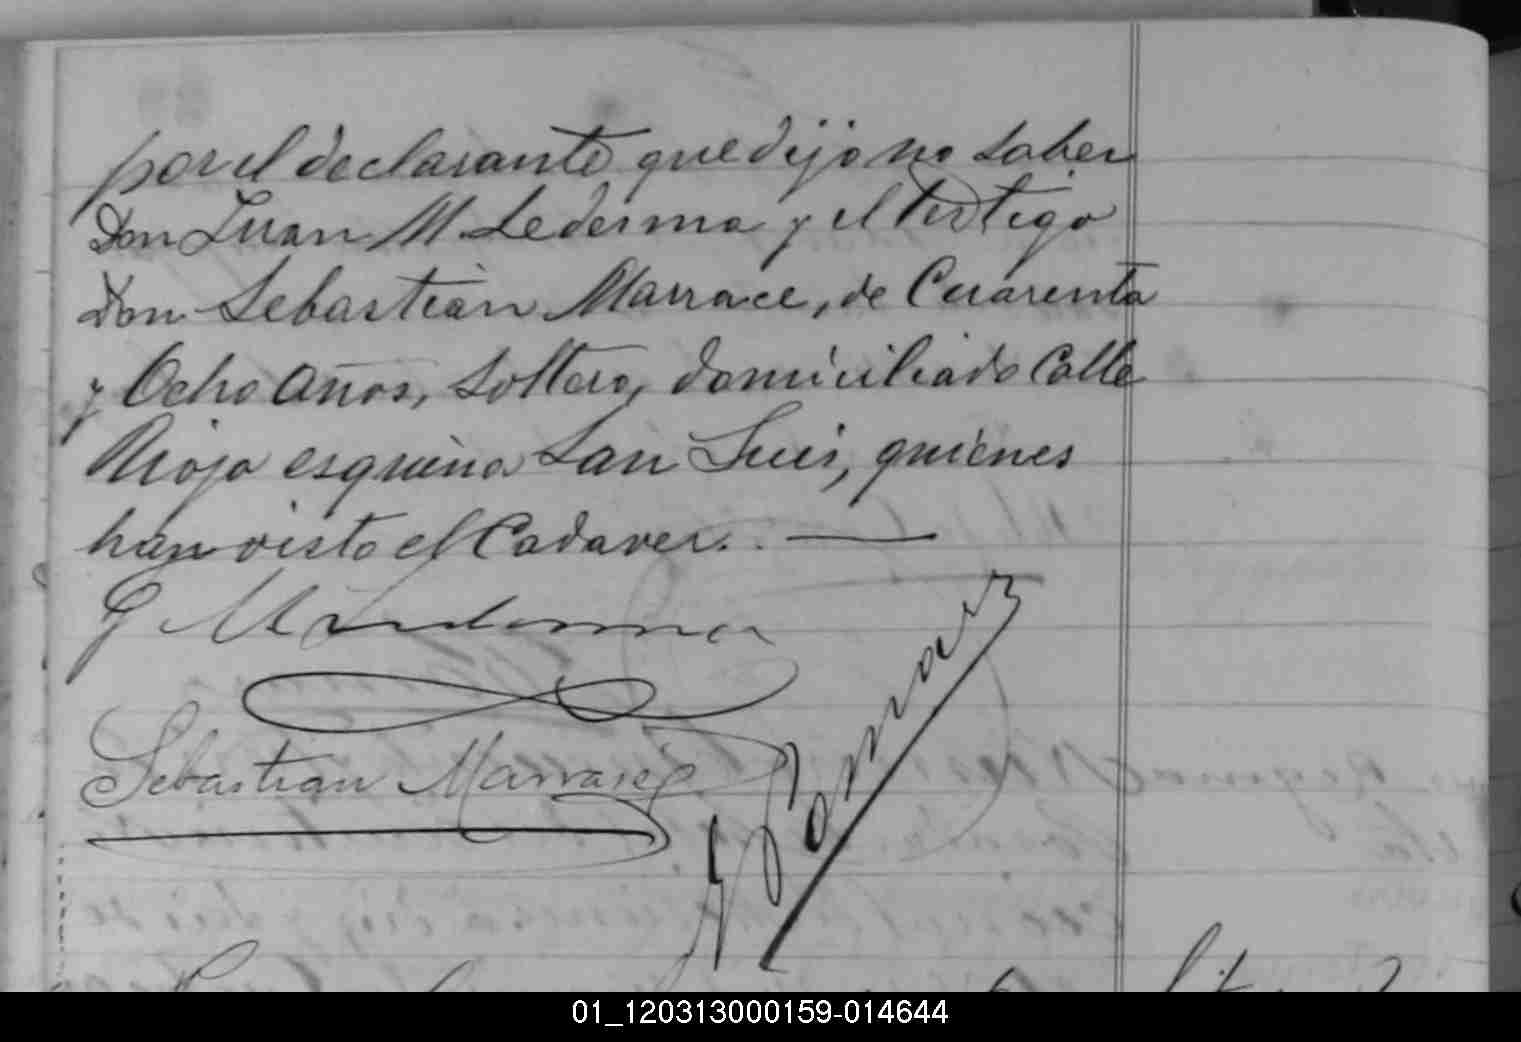 por el declarante que dijo no saber
Don Juan M Ledesma y el testigo
Don Sebastian Marrace, de Cuarenta
y Ocho años, soltero, domiciliado Calle
Rioja esquina San Luis, quienes
han visto el Cadaver. . —
Sebastian Marrase
01_120313000159-014644